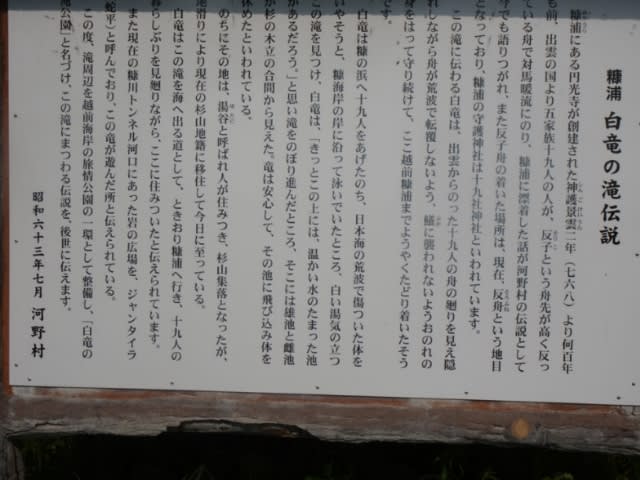 糠浦 白竜の滝伝説
糠浦にある円光寺が創建された神護景雲二年(七六八)より何百年
も前、出雲の国より五家族十九人の人が、反子という舟先が高く反っ
ている舟で対馬暖流にのり、糠浦に漂着した話が河野村の伝説として
今でも語りつがれ、また反子舟の着いた場所は、現在、反舟という地目
となっており、糠浦の守護神社は十九社神社といわれています。
この滝に伝わる白竜は、出雲からのった十九人の舟の廻りを見え隠
れしながら舟が荒波で転覆しないよう、鱶に襲われないようおのれの
身をはって守り続けて、ここ越前糠浦までようやくたどり着いたそう
です。
白竜は糠の浜へ十九人をあげたのち、日本海の荒波で傷ついた体を
いやそうと、糠海岸の岸に沿って泳いでいたところ、白い湯気の立つ
この滝を見つけ、白竜は、「きっとこの上には、温かい水のたまった池
があるだろう。」と思い滝をのぼり進んだところ、そこには雄池と雌池
が杉の木立の合間から見えた。竜は安心して、その池に飛び込み体を
休めたといわれています。
のちにその地は、湯谷と呼ばれ人が住みつき、杉山集落となったが、
地滑りにより現在の杉山地籍に移住して今日に至っている。
白竜はこの滝を海へ出る道として、ときおり糠浦へ行き、十九人の
暮らしぶりを見廻りながら、ここに住みついたと伝えられています。
また現在の糠川トンネル河口にあった岩の広場を、ジャンタイラ
(蛇平)と呼んでおり、この竜が遊んだ所と伝えられている。
この度、滝周辺を越前海岸の旅情公園の一環として整備し、「白竜の
滝公園」と名づけ、この滝にまつわる伝説を、後世に伝えます。
昭和六十三年七月 河野村